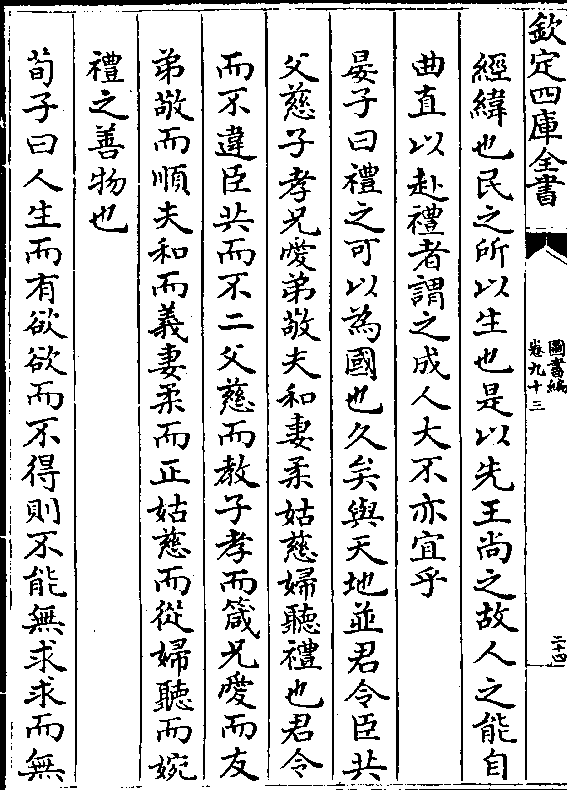 欽定四庫全書
圖書編
卷九十三
二十四
經緯也民之所以生也是以先王尚之故人之能自
曲直以赴禮者謂之成人大不亦宜乎
晏子曰禮之可以為國也久矣與天地並君令臣共
父慈子孝兄愛弟敬夫和妻柔姑慈婦聽禮也君令
而不違臣共而不二父慈而教子孝而箴兄愛而友
弟敬而順夫和而義妻柔而正姑慈而從婦聽而婉
禮之善物也
荀子曰人生而有欲欲而不得則不能無求求而無